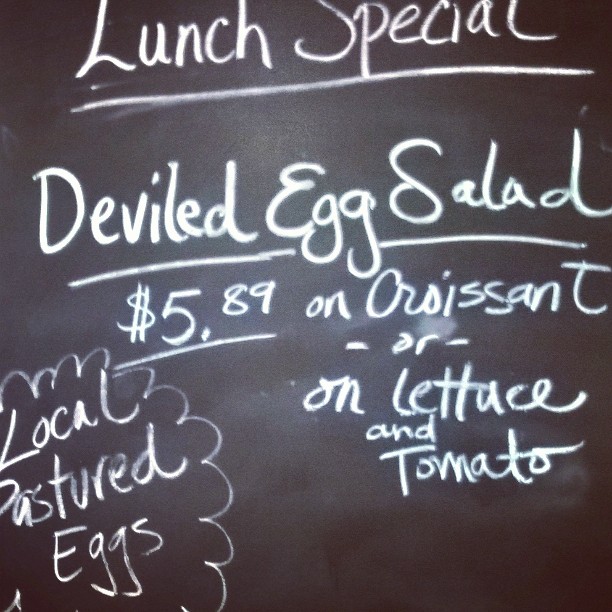 Lunch Special
Deviled Egg Salad
$5.89 on Croissant
- or -
on lettuce
and
Tomato
Local
Pastured
Eggs